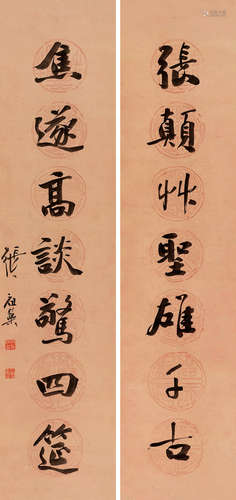 張顛艸聖雄千古
焦遂高談驚四筵
張祖翼